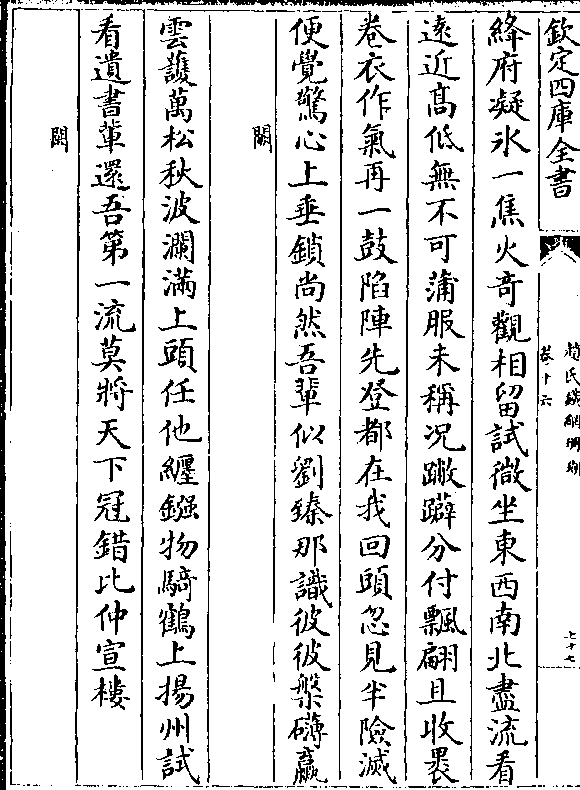 欽定四庫全書
趙氏鐵網珊瑚
卷十六
七十七
絳府凝氷一焦火竒觀相留試微坐東西南北盡流看
逺近髙低無不可蒲服未稱况蹴躃分付飄翩且收褁
卷衣作氣再一鼓陷陣先登都在我回頭忽見半險滅
便覺驚心上垂鎖尚然吾輩似劉臻那識彼彼槃礴臝
闕
雲䕶萬松秋波瀾滿上頭任他纒鏹物騎鶴上揚州試
看遺書軰還吾第一流莫將天下冠錯比仲宣樓
闕